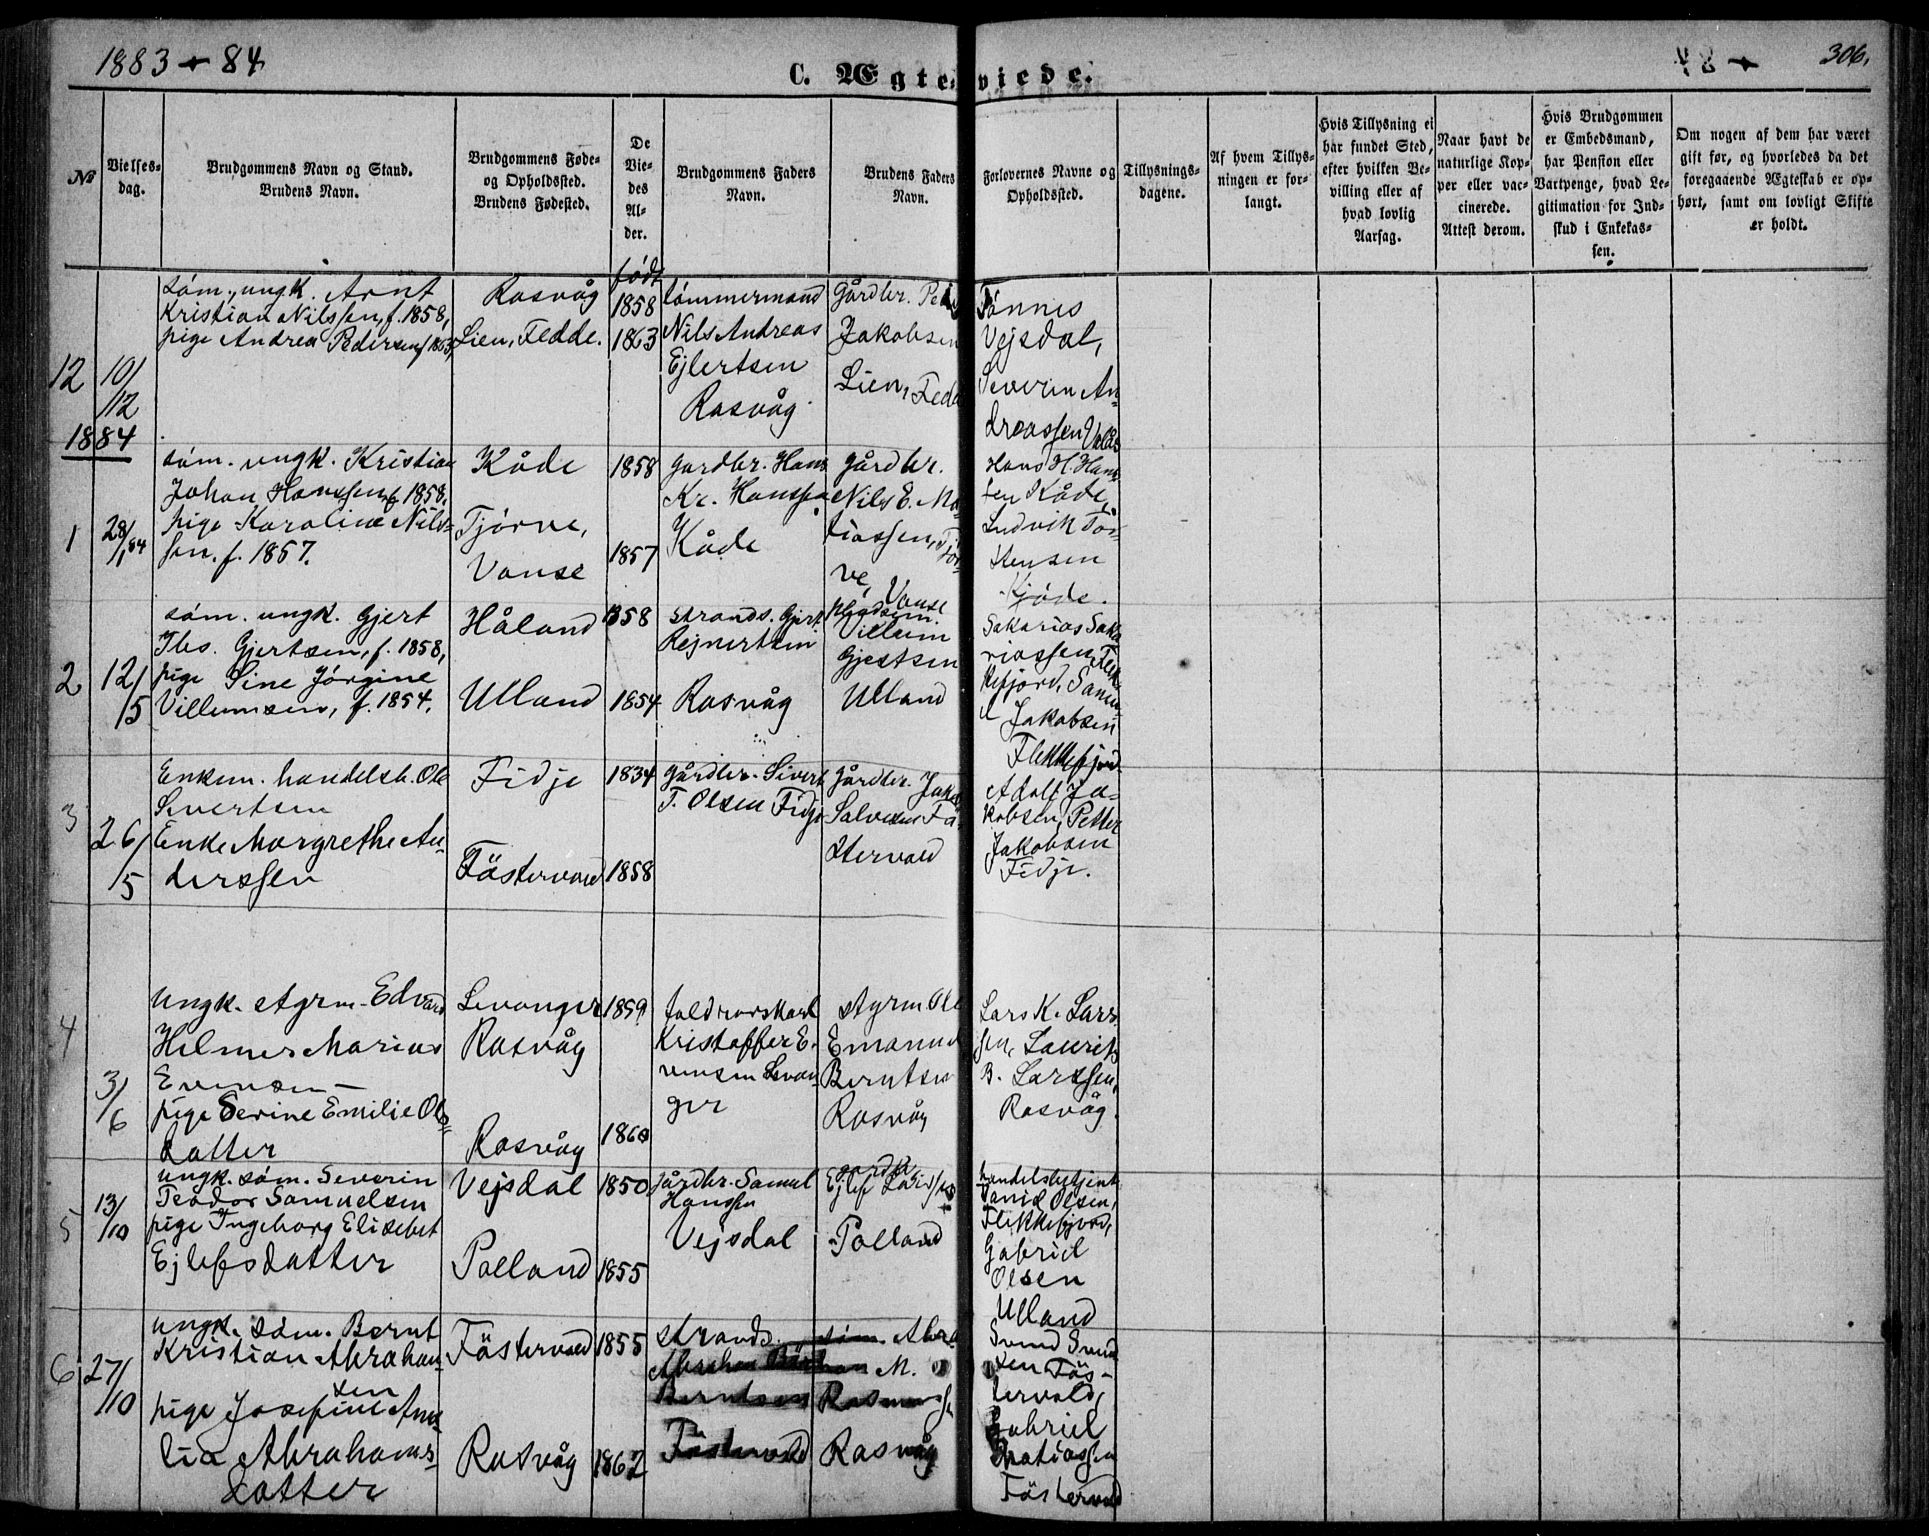 1883 + 84
306.
C. Ægteviede.
No
Vielses-
dag.
Brudgommens Navn og Stand.
Brudens Navn.
Brudgommens Føde-
og Opholdssted.
Brudens Fødested.
De
Vie-
des
Al-
der.
Brudgommens Faders
Navn.
Brudens Faders
Navn.
Forlovernes Navne og
Opholdssted.
Tillysnings-
dagene.
Af hvem Tillys-
ningen er for-
langt.
Hvis Tillysning ei
har fundet Sted,
efter hvilken Be-
villing eller af
hvad lovlig
Aarsag.
Naar havt de
naturlige Kop-
per eller vac-
cinerede.
Attest derom.
Hvis Brudgommen
er Embedsmand,
har Pension eller
Vartpenge, hvad Le-
gitimation for Ind-
skud i Enkekas-
sen.
Om nogen af dem har været
gift før, og hvorledes da det
foregaaende Ægteskab er op-
hørt, samt om lovligt Skifte
er holdt.
12
10/
/12
søm., ungk. Arnt
Kristian Nilssen, f. 1858,
pige Andrea Pedersen f 1863,
Rasvåg
Lien, Fedde.
født
1858
1863
tømmermand
Nils Andreas
Ejlertsen
Rasvåg
Gårdbr. Peder
Jakobsen
Lien, Fedde
Tønnes
Vejsdal,
Severin An-
dreassen
1884
1
28/
/1 84
søm. ungk. Kristian
Johan Hanssen f. 1858.
pige Karoline Nils-
sen. f. 1857.
Kåde
Tjørve,
Vanse
1858
1857
gardbr. Hans
Kr. Hanssen
Kåde
gårdbr.
Nils E. Ma-
tiassen, Tjør-
ve, Vanse
Hans H. Hans-
sen Kåde,
Ludvik Tor-
stensen
Kjøde.
2
12/
/5
søm. ungk. Gjert
Tbs. Gjertsen, f. 1858,
pige Sine Jørgine
Villumsen, f. 1854.
Håland
Ulland
1858
1854
strands. Gjert
Rejnertsen
Rasvåg
Villum
Gjertsen
Ulland
Sakarias Saka-
riassen, Flek-
kefjord, Samu-
el Jakobsen
Flekkefjord
3
26/
/5
Enkem. handelsb. Ole
Sivertsen
Enke Margrethe An-
derssen
Fidje
Fästervold
1834
1858
gårdbr. Sivert
T. Olsen Fidje
gårdbr. Jakob
Salvesen Fä-
stervold
Adolf Ja-
kobsen, Petter
Jakobsen
Fidje.
4
3/
/6
Ungk. styrm. Edvard
Helmer Marius
Evensen
pige Serine Emilie Ols-
datter
Levanger
Rasvåg
Rasvåg
1859
1860
toldrorskarl
Kristoffer E-
vensen Levan-
ger
styrm Ole
Emanuel
Berntsen
Rasvåg
Lars K. Lars-
sen, Laurits
B. Larssen,
Rasvåg.
5
13/
/10
ungk. søm. Severin
Teodor Samuelsen
pige Ingeborg Elisebet
Ejlefsdatter
Vejsdal
Polland
1850
1855
gårdbr. Samuel
Hanssen
Vejsdal
Ejlef
Polland
handelsbetjent
Daniel Olsen,
Flekkefjord,
Gabriel
Olsen
Ulland
6
27/
/10
ungk. søm. Bernt
Kristian Abraham-
sen
pige Josefine Ama-
lia Abrahams-
datter
Fästervold
Rasvåg
1855
1862
strands.
Abraham
Berntsen
Fästervold
søm. Abra-
ham M.
Rasmussen
Rasvåg
Svend Svend-
sen Fäs-
tervold,
Gabriel
Matiassen
Fästervold